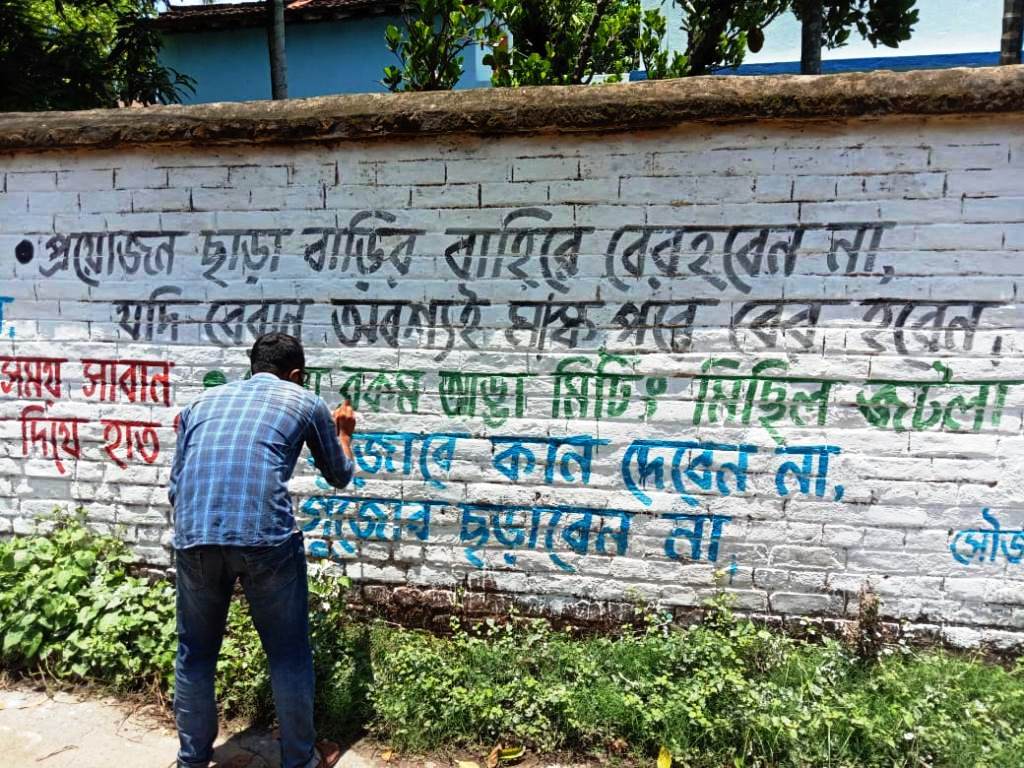 প্রয়োজন ছাড়া বাড়ির বাহিরে বেরহবেন না,
যদি বেরান অবশ্যই মাস্ক পরে বের হবেন,
সময় সাবান
দিয়ে হাত
রকম আড্ডা মিটিং মিছিল জটলা
গুজোবে কান দেবেন না,
গুজোব ছড়াবেন না,
সৌজ